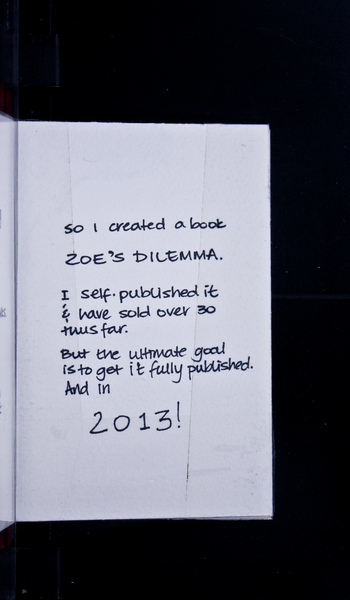 so I created a book
ZOE'S DILEMMA.
I self-published it
& have sold over 30
thus far.
But the ultimate goal
is to get it fully published.
And in
2013!